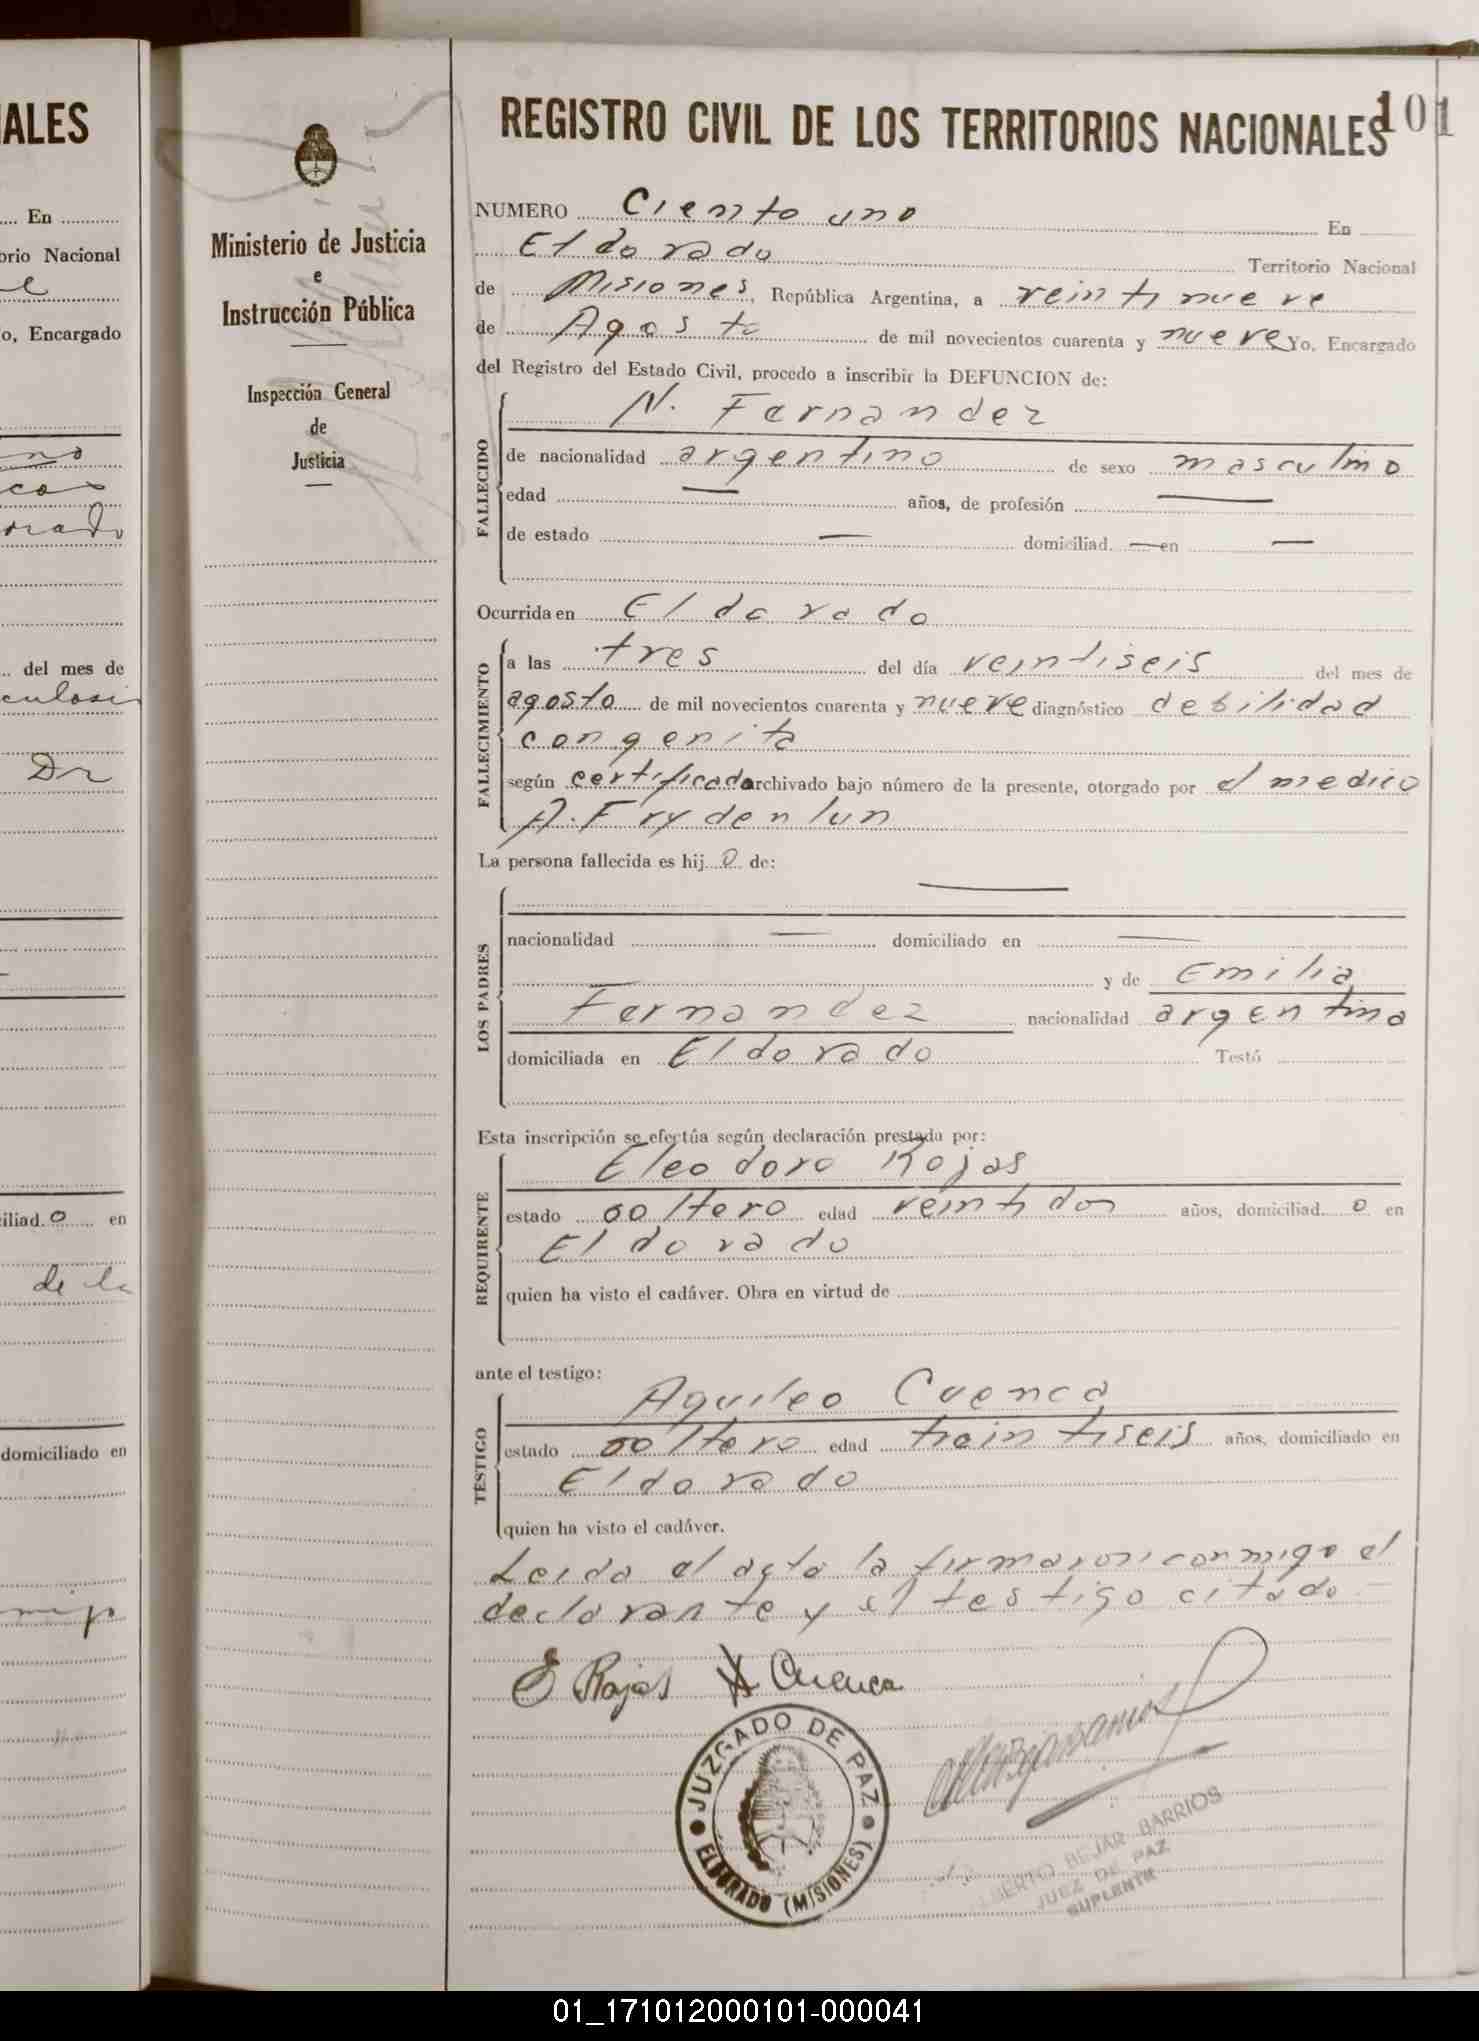 REGISTRO CIVIL DE LOS TERRITORIOS NACIONALES
101
Ministerio de Justicia
e
Instrucción Pública
Inspección General
de
Justicia
NUMERO Ciento uno En
Eldorado Territorio Nacional
de Misiones, República Argentina, a veintinueve
de Agosto de mil novecientos cuarenta y nueve Yo, Encargado
del Registro del Estado Civil, procedo a inscribir la DEFUNCION de:
FALLECIDO
N. Fernandez
de nacionalidad argentino de sexo masculino
edad — años, de profesión —
de estado — domiciliad — en —
Ocurrida en Eldorado
FALLECIMIENTO
a las tres del día veintiseis del mes de
agosto de mil novecientos cuarenta y nueve diagnóstico debilidad
congenita
según certificado archivado bajo número de la presente, otorgado por el medico
A. Frydenlun
La persona fallecida es hijo de:
LOS PADRES
—
nacionalidad — domiciliado en —
y de Emilia
Fernandez nacionalidad argentina
domiciliada en Eldorado Testó
Esta inscripción se efectúa según declaración prestada por:
REQUIRENTE
Eleodoro Rojas
estado soltero edad veintidos años, domiciliado en
Eldorado
quien ha visto el cadáver. Obra en virtud de
ante el testigo:
TESTIGO
Aquileo Cuenca
estado soltero edad treintiseis años, domiciliado en
Eldorado
quien ha visto el cadáver.
Leida el acta la firmaron conmigo el
declarante y el testigo citado —
E Rojas A Cuenca
JUZGADO DE PAZ
ELDORADO (MISIONES)
ALBERTO BEJAR BARRIOS
JUEZ DE PAZ
SUPLENTE
IALES
En
orio Nacional
o, Encargado
del mes de
Dr
iliad. o en
de la
domiciliado en
01_171012000101-000041